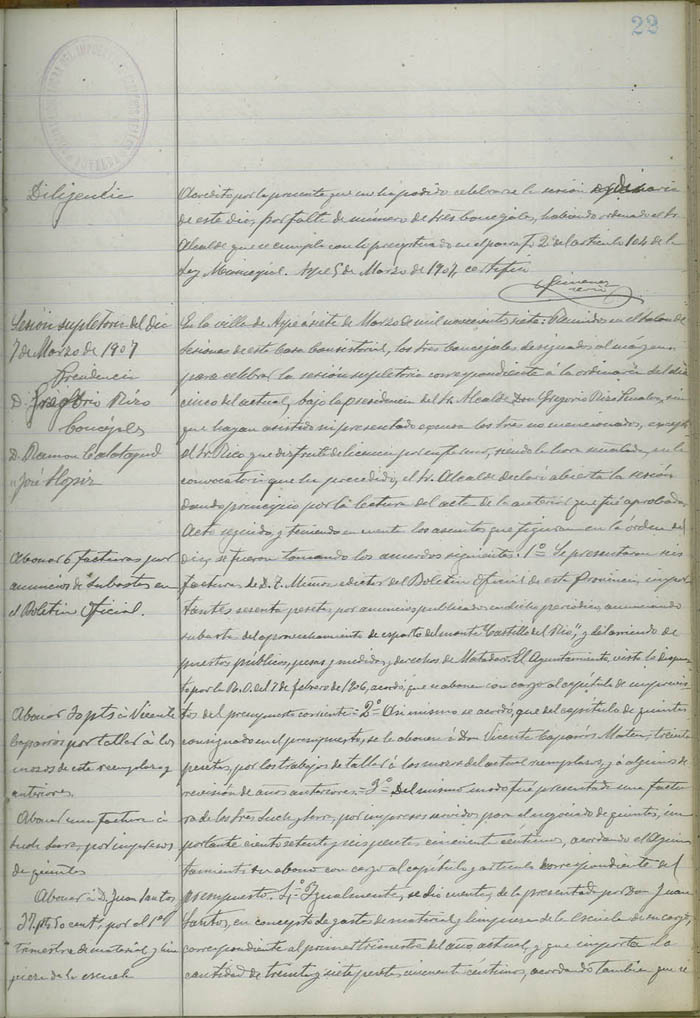 22
Diligencia
Acredito por la presente que no ha podido celebrarse la sesión ordinaria
de este dia, por falta de número de tres Concejales, habiendo ordenado el Sr.
Alcalde que se cumpla con lo preceptuado en el párrafo 2º del artículo 104 de la
Ley Municipal. Aspe 5 de Marzo de 1907, certifico
Gimenez
Sesión supletoria del dia
7 de Marzo de 1907
Presidencia
D. Gregorio Rizo
Concejales
D. Ramon Calatayud
" José Llopiz
En la villa de Aspe á siete de Marzo de mil novecientos siete: Reunidos en el salon de
sesiones de esta Casa Consistorial, los tres Concejales designados al márgen,
para celebrar la sesión supletoria correspondiente á la ordinaria del dia
cinco del actual, bajo la presidencia del Sr. Alcalde Don Gregorio Rizo
que hayan asistido ni presentado excusa los tres no mencionados, excepto
el Sr. Rico que disfruta de licencia por enfermo, siendo la hora señalada en la
convocatoria que ha precedido, el Sr. Alcalde declaró abierta la sesión
dando principio por la lectura del acta de la anterior que fué aprobada.
Acto seguido, y teniendo en cuenta los asuntos que figuran en la órden del
dia, se fueron tomando los acuerdos siguientes. 1º Se presentaron seis
Abonar 6 facturas por
anuncios de subastas en
el Boletin Oficial.
facturas de D. editor del Boletin Oficial de esta Provincia, impor-
tantes sesenta pesetas por anuncios publicados en dicho periodico, anunciando
subasta del aprovechamiento de esparto del monte "Castillo del Rio", y del arriendo de
puestos públicos, pesas y medidas y derechos de Matadero. El Ayuntamiento, visto lo dispues-
to por la R.O. del 7 de febrero de 1906, acordó, que se abonen con cargo al capítulo de imprevis-
Abonar 30 pts á Vicente
Caparrós por tallar á los
mozos de este reemplazo y
anteriores.
tos del presupuesto corriente = 2º Asi mismo se acordó, que del capítulo de quintas
consignado en el presupuesto, se le abonen á Don Vicente Caparrós Mateu, treinta
pesetas, por los trabajos de tallar á los mozos del actual reemplazo, y á algunos de
revisión de años anteriores. = 3º Del mismo modo fué presentada una factu-
Abonar una factura á
por impresos
de quintas
ra de los por impresos servidos para el negociado de quintas, im-
portante ciento setenta y seis pesetas cincuenta céntimos, acordando el Ayun-
tamiento su abono con cargo al capítulo y artículo correspondiente del
Abonar á D. Juan Santos
37 pts 50 cent. por el 1er
trimestre de material y lim-
pieza de la escuela
presupuesto. 4º Igualmente, se dio cuenta, de la presentada por Don Juan
Santos, en concepto de gastos de material y limpieza de la Escuela de su cargo,
correspondiente al primer trimestre del año actual, y que importa la
cantidad de treinta y siete pesetas cincuenta céntimos, acordando tambien que se